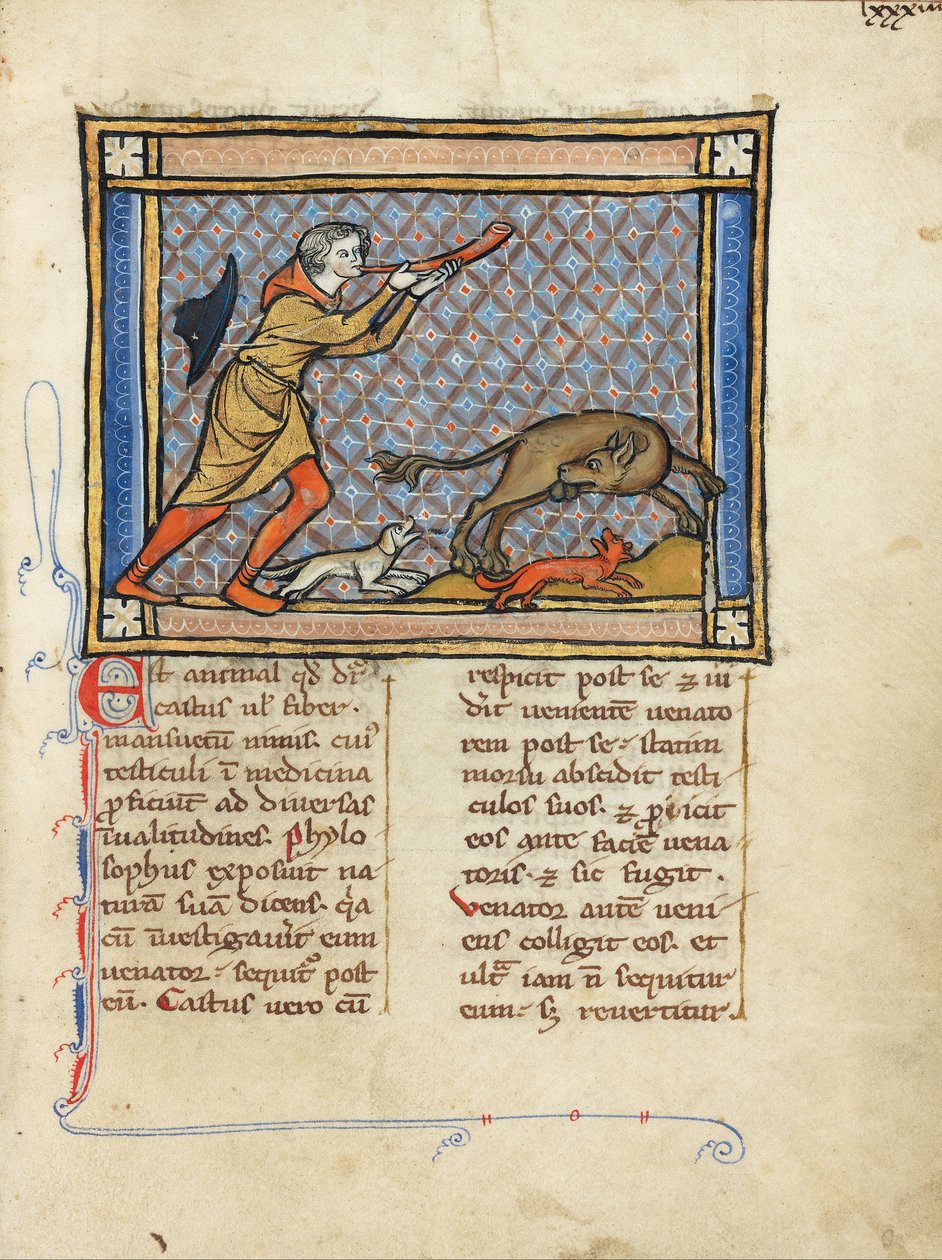 lxxxiiii
Est animal qđ dr̃
castus ul̉ fiber.
mansuetũ nimis. cuiꝰ
testiculi ĩ medicina
ꝓficiũt ad diuersas
ĩualitudines. phylo
sophus exposuit na
turã suã dicens. q̃a
cũ ĩuestigauit̉ eum
uenator sequit᷑ post
eũ. Castus uero cũ
respicit post se ⁊ ui
dit uenientẽ uenato
rem post se statim
morsu abscidit testi
culos suos. ⁊ ꝓicit
eos ante faciẽ uena
toris. ⁊ sic fugit.
Venator autẽ ueni
ens colligit eos. et
ult̃ iam ñ sequitur
eum. sꝫ reuertitur.